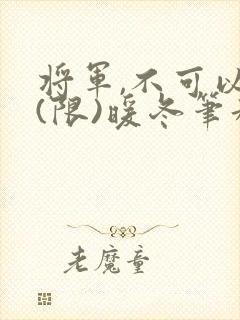 将軍,不可以
(限)暖冬筆
老魔童